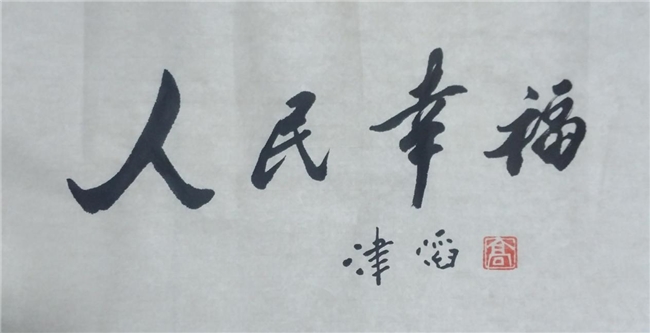 人民幸福
津滔 髙